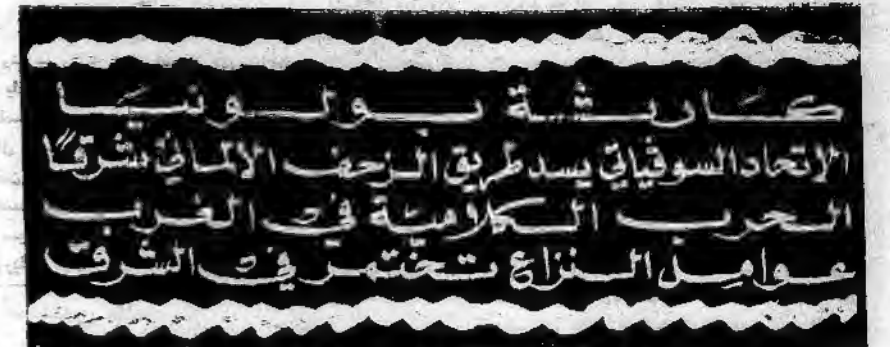 كارثة بولونيا
الاتحاد السوفياتي يسد طريق الزحف الالماني شرقًا
الحرب الكلامية في الغرب
عوامل النزاع تختمر في الشرق